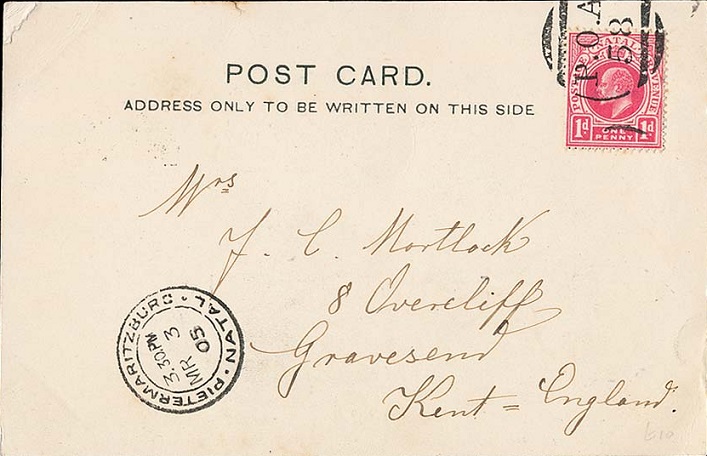 POST CARD.
ADDRESS ONLY TO BE WRITTEN ON THIS SIDE
P.O.A
58
NATAL
POSTAGE
REVENUE
1d ONE PENNY 1d
Mrs
F. C. Mortlock
8 Overcliff
Gravesend
Kent = England.
PIETERMARITZBURG · NATAL ·
3.30PM
MR 3
05
£10